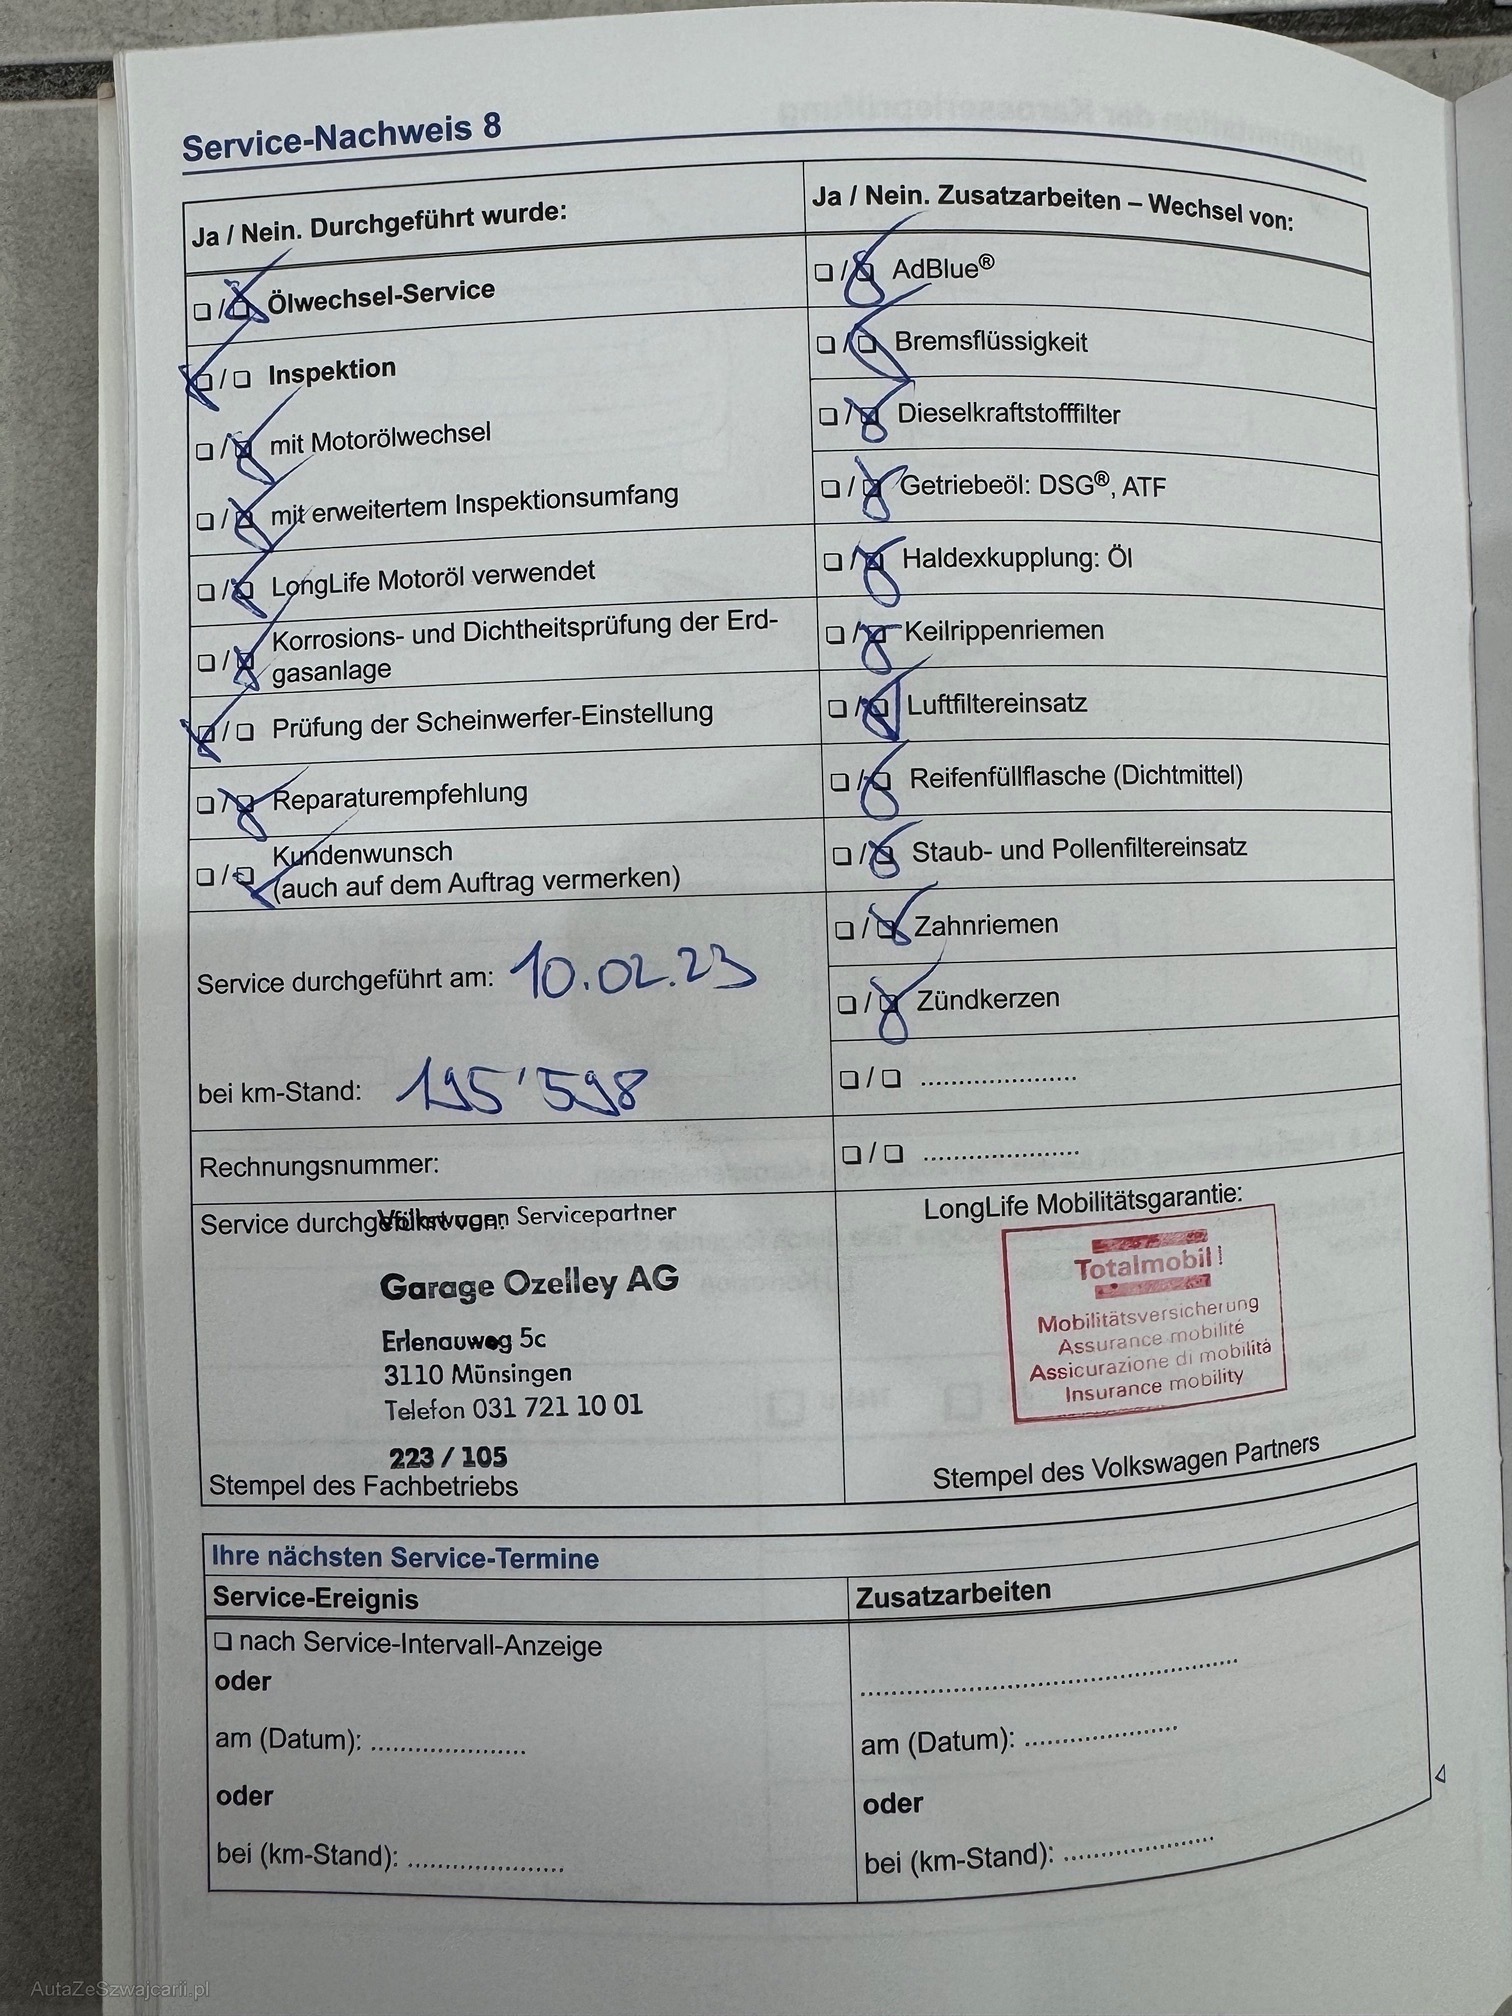 Service-Nachweis 8
Ja / Nein. Durchgeführt wurde:
❏ / ❏ Ölwechsel-Service
❏ / ❏ Inspektion
❏ / ❏ mit Motorölwechsel
❏ / ❏ mit erweitertem Inspektionsumfang
❏ / ❏ LongLife Motoröl verwendet
❏ / ❏ Korrosions- und Dichtheitsprüfung der Erd-
gasanlage
❏ / ❏ Prüfung der Scheinwerfer-Einstellung
❏ / ❏ Reparaturempfehlung
❏ / ❏ Kundenwunsch
(auch auf dem Auftrag vermerken)
Service durchgeführt am: 10.02.23
bei km-Stand: 195'598
Rechnungsnummer:
Service durchgeführt von:
Volkswagen Servicepartner
Garage Ozelley AG
Erlenauweg 5c
3110 Münsingen
Telefon 031 721 10 01
223 / 105
Stempel des Fachbetriebs
Ja / Nein. Zusatzarbeiten – Wechsel von:
❏ / ❏ AdBlue®
❏ / ❏ Bremsflüssigkeit
❏ / ❏ Dieselkraftstofffilter
❏ / ❏ Getriebeöl: DSG®, ATF
❏ / ❏ Haldexkupplung: Öl
❏ / ❏ Keilrippenriemen
❏ / ❏ Luftfiltereinsatz
❏ / ❏ Reifenfüllflasche (Dichtmittel)
❏ / ❏ Staub- und Pollenfiltereinsatz
❏ / ❏ Zahnriemen
❏ / ❏ Zündkerzen
❏ / ❏ ......................
❏ / ❏ ......................
LongLife Mobilitätsgarantie:
Totalmobil!
Mobilitätsversicherung
Assurance mobilité
Assicurazione di mobilità
Insurance mobility
Stempel des Volkswagen Partners
Ihre nächsten Service-Termine
Service-Ereignis
❏ nach Service-Intervall-Anzeige
oder
am (Datum): ......................
oder
bei (km-Stand): ......................
Zusatzarbeiten
......................................................
am (Datum): ......................
oder
bei (km-Stand): ......................
AutaZeSzwajcarii.pl